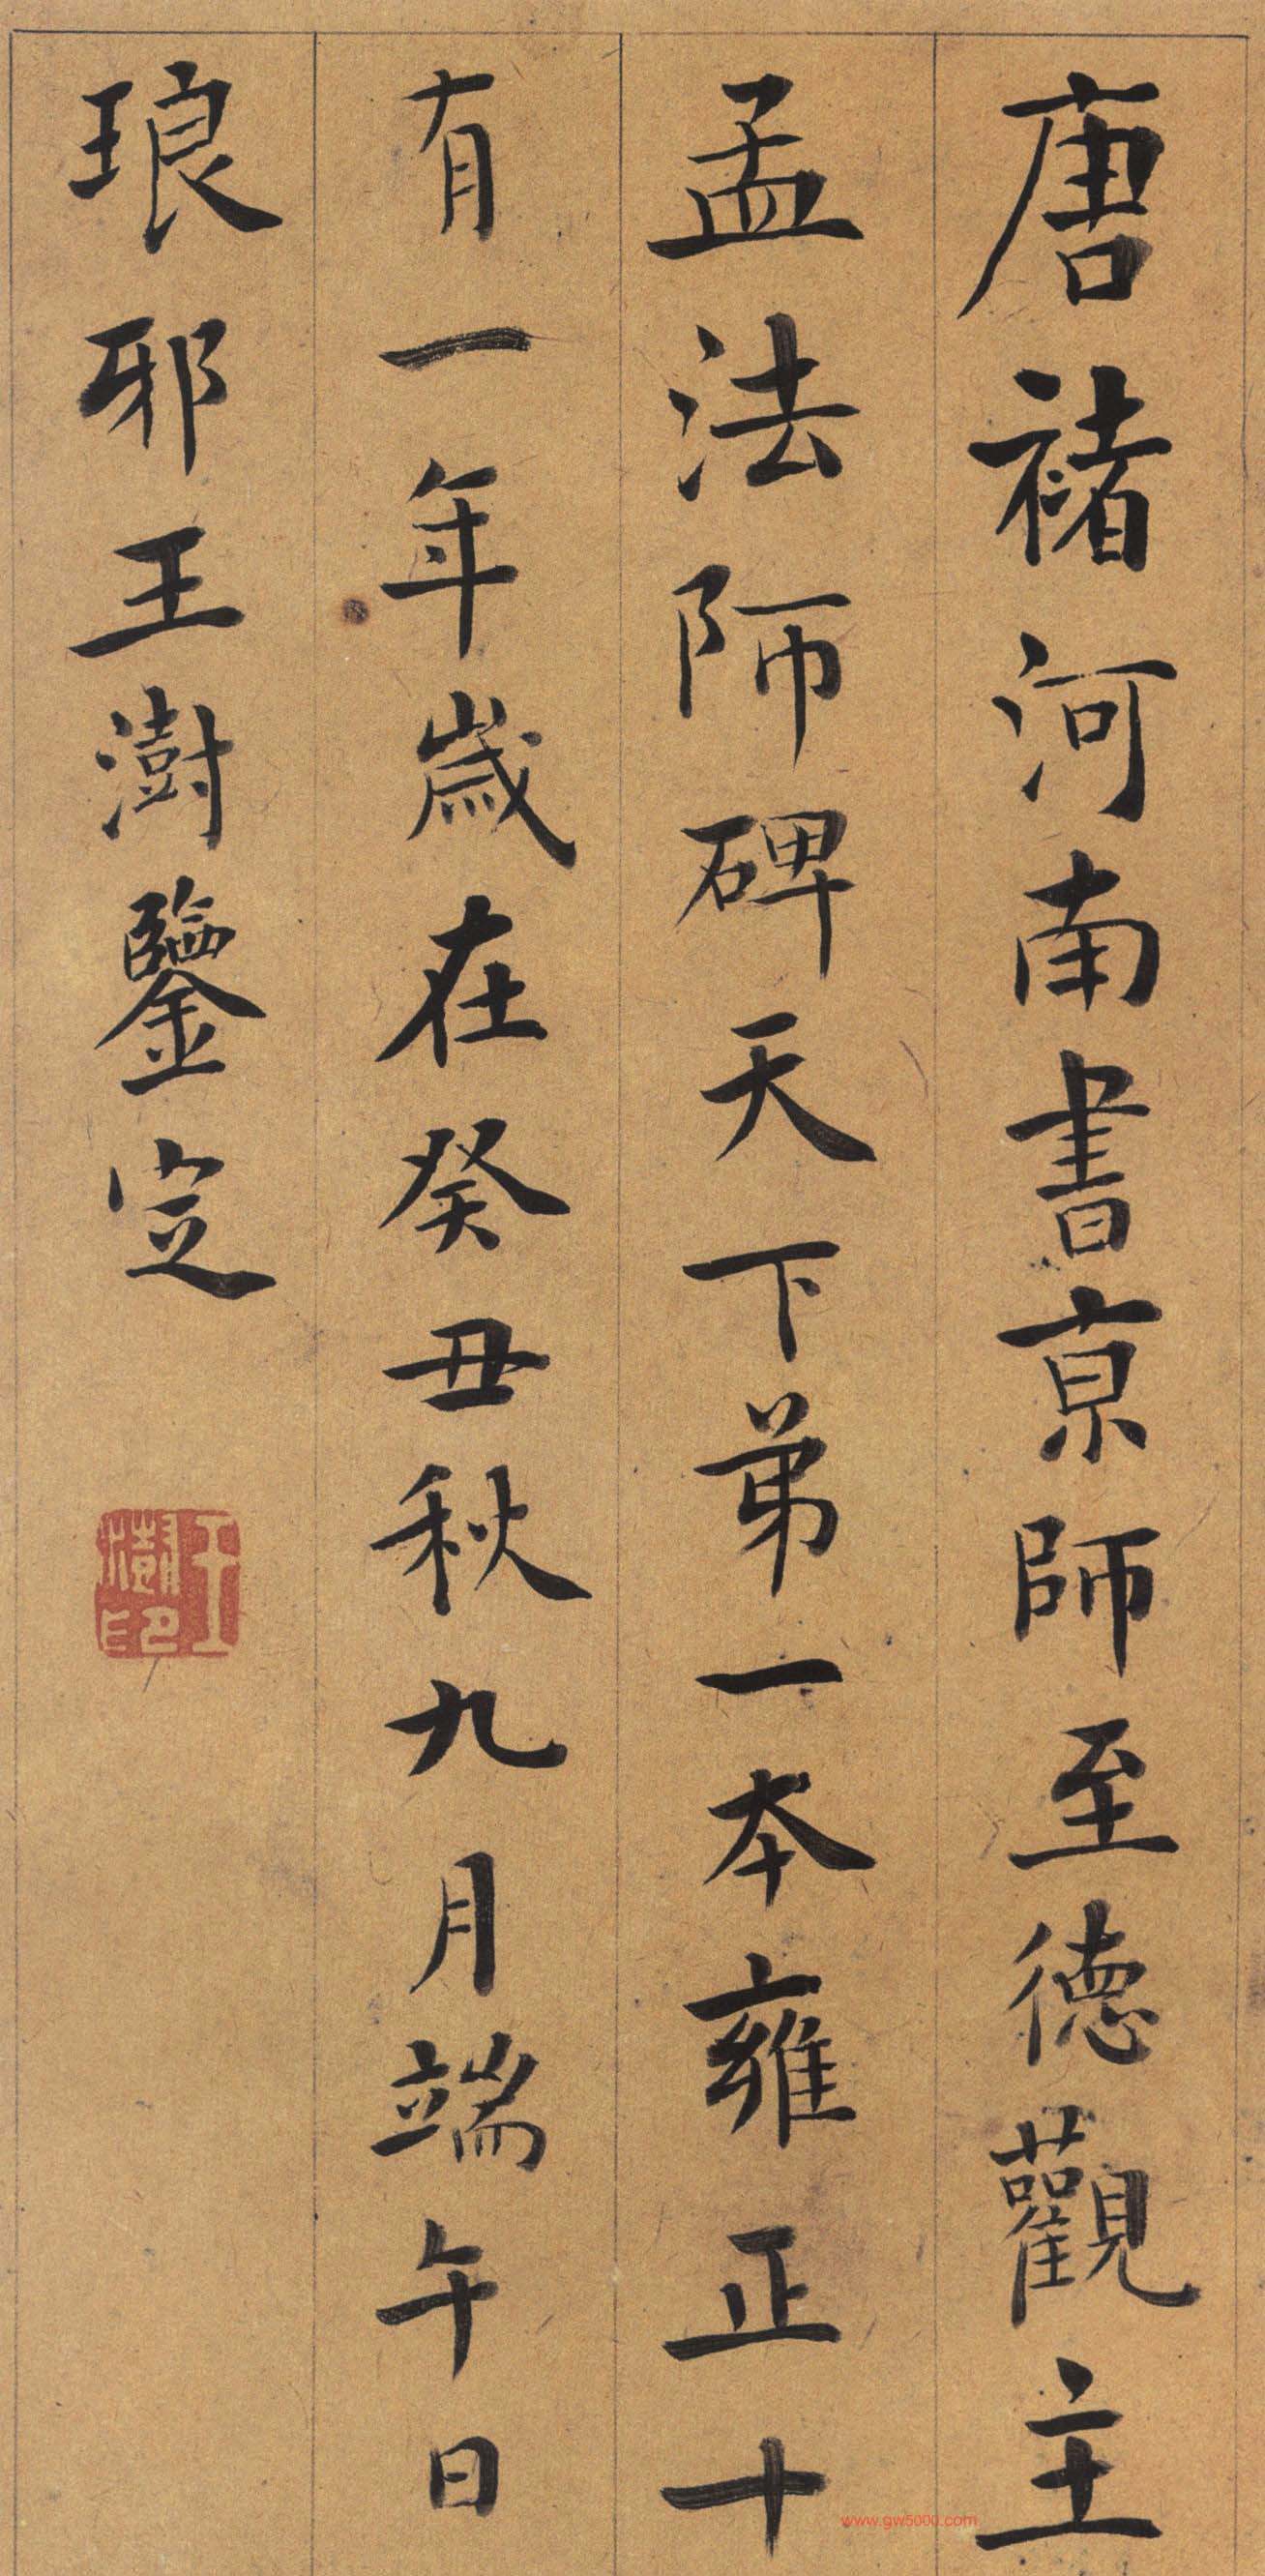 唐褚河南書京師至德觀主
孟法師碑天下弟一本雍正十
有一年歲在癸丑秋九月端午日
琅邪王澍鑒定
王澍印
www.gw5000.com